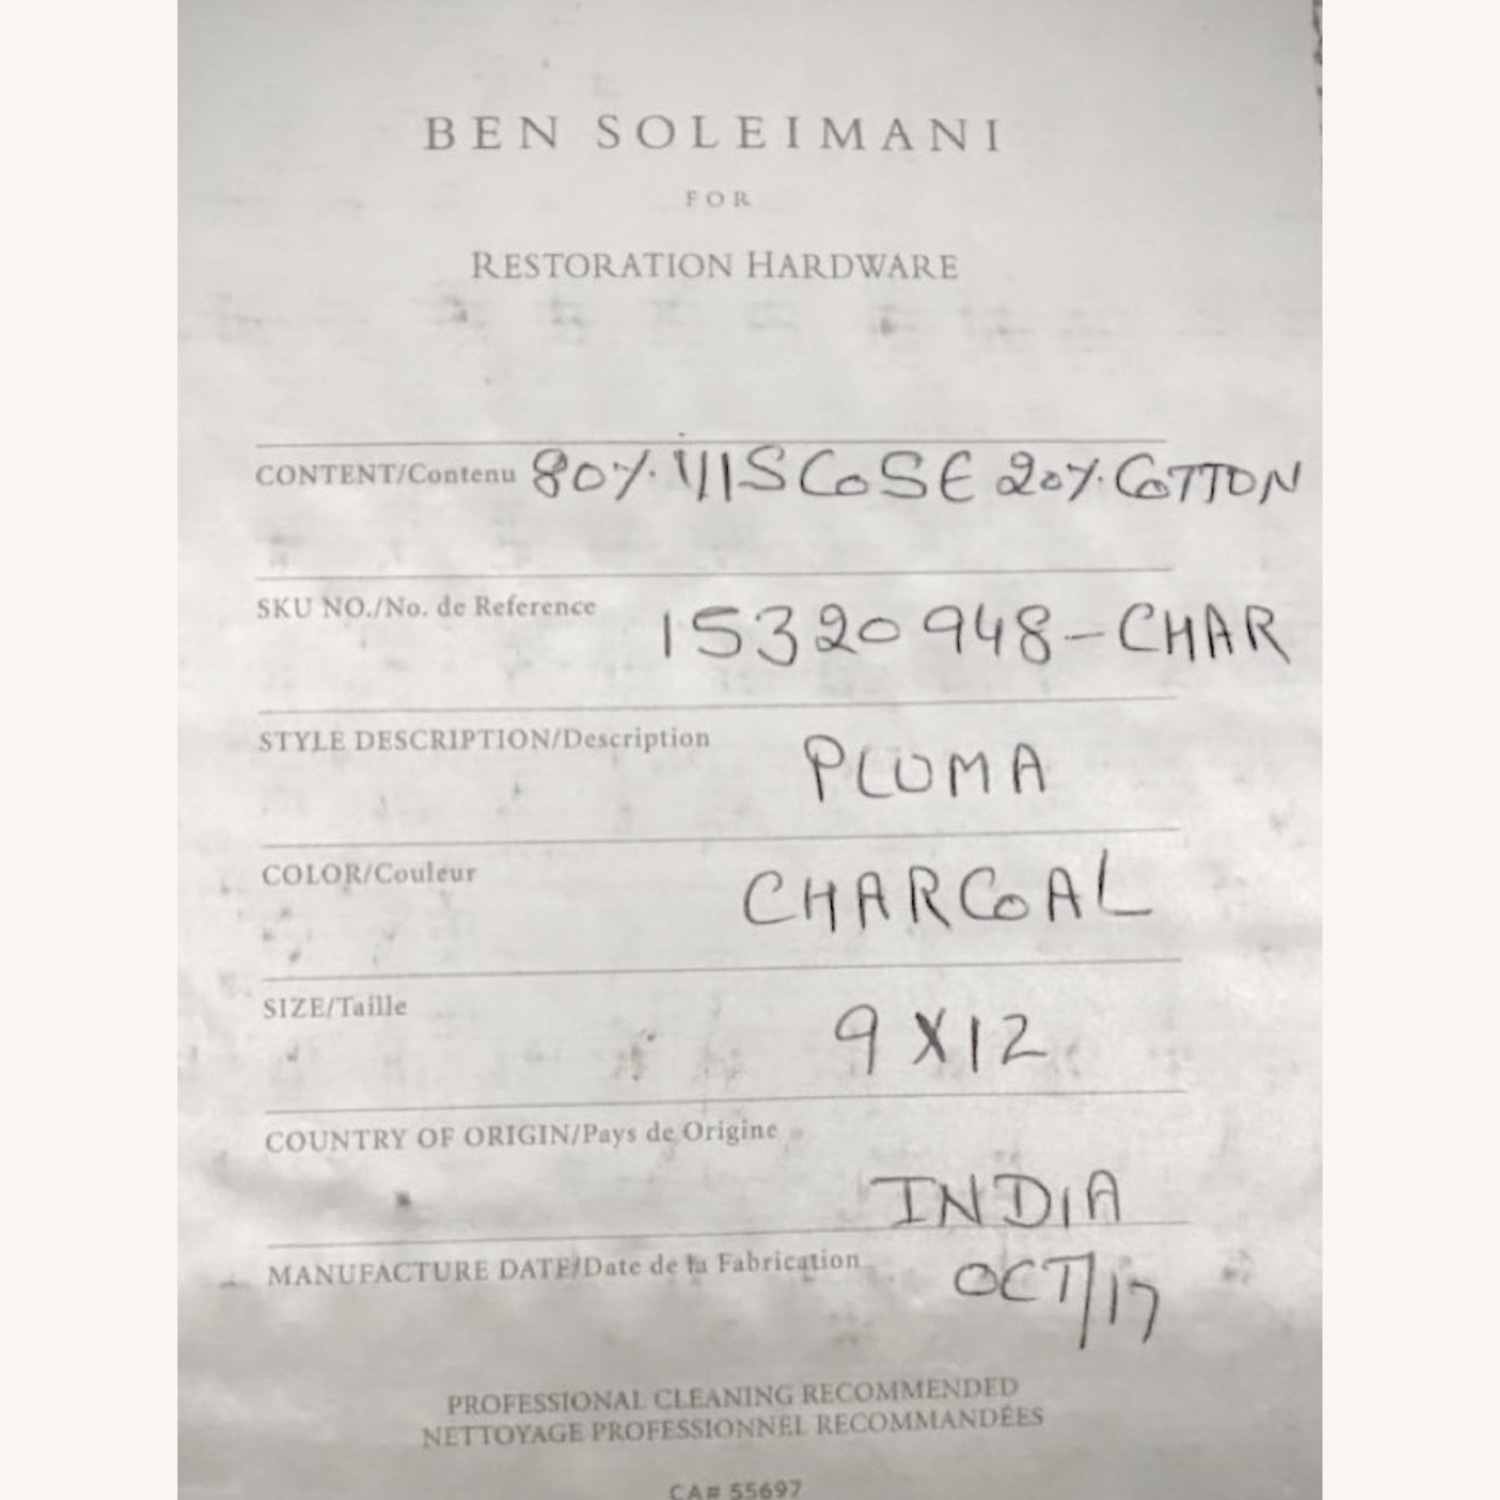 BEN SOLEIMANI
FOR
RESTORATION HARDWARE
CONTENT/Contenu 80% VISCOSE 20% COTTON
SKU NO./No. de Reference 15320948-CHAR
STYLE DESCRIPTION/Description PLUMA
COLOR/Couleur CHARCOAL
SIZE/Taille 9X12
COUNTRY OF ORIGIN/Pays de Origine INDIA
MANUFACTURE DATE/Date de la Fabrication OCT/17
PROFESSIONAL CLEANING RECOMMENDED
NETTOYAGE PROFESSIONNEL RECOMMANDÉES
CA# 55697